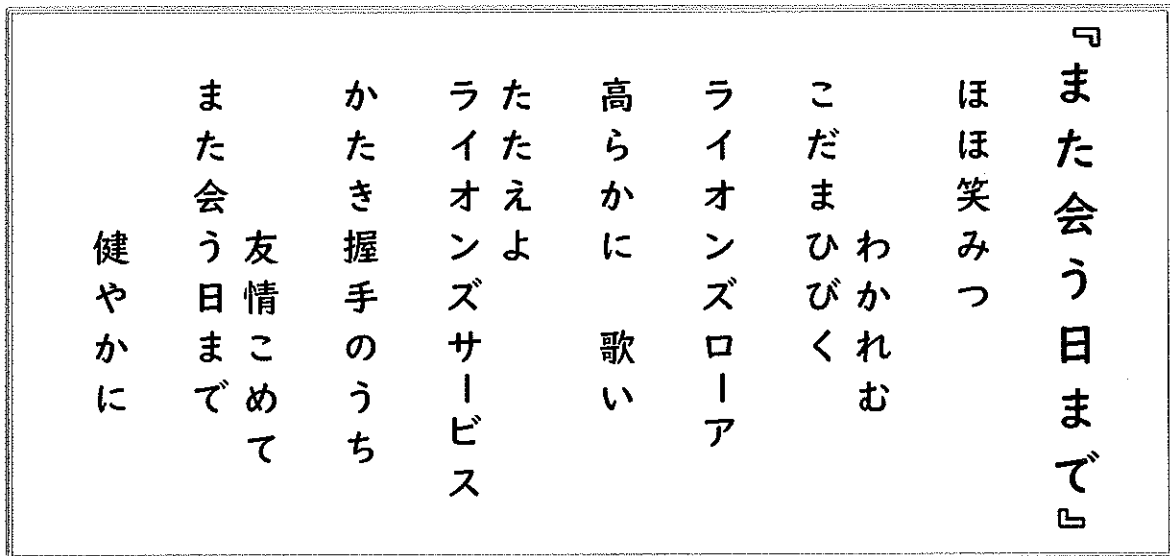 『また会う日まで』
ほほ笑みつ
わかれむ
こだまひびく
ライオンズローア
高らかに　歌い
たたえよ
ライオンズサービス
かたき握手のうち
友情こめて
また会う日まで
健やかに